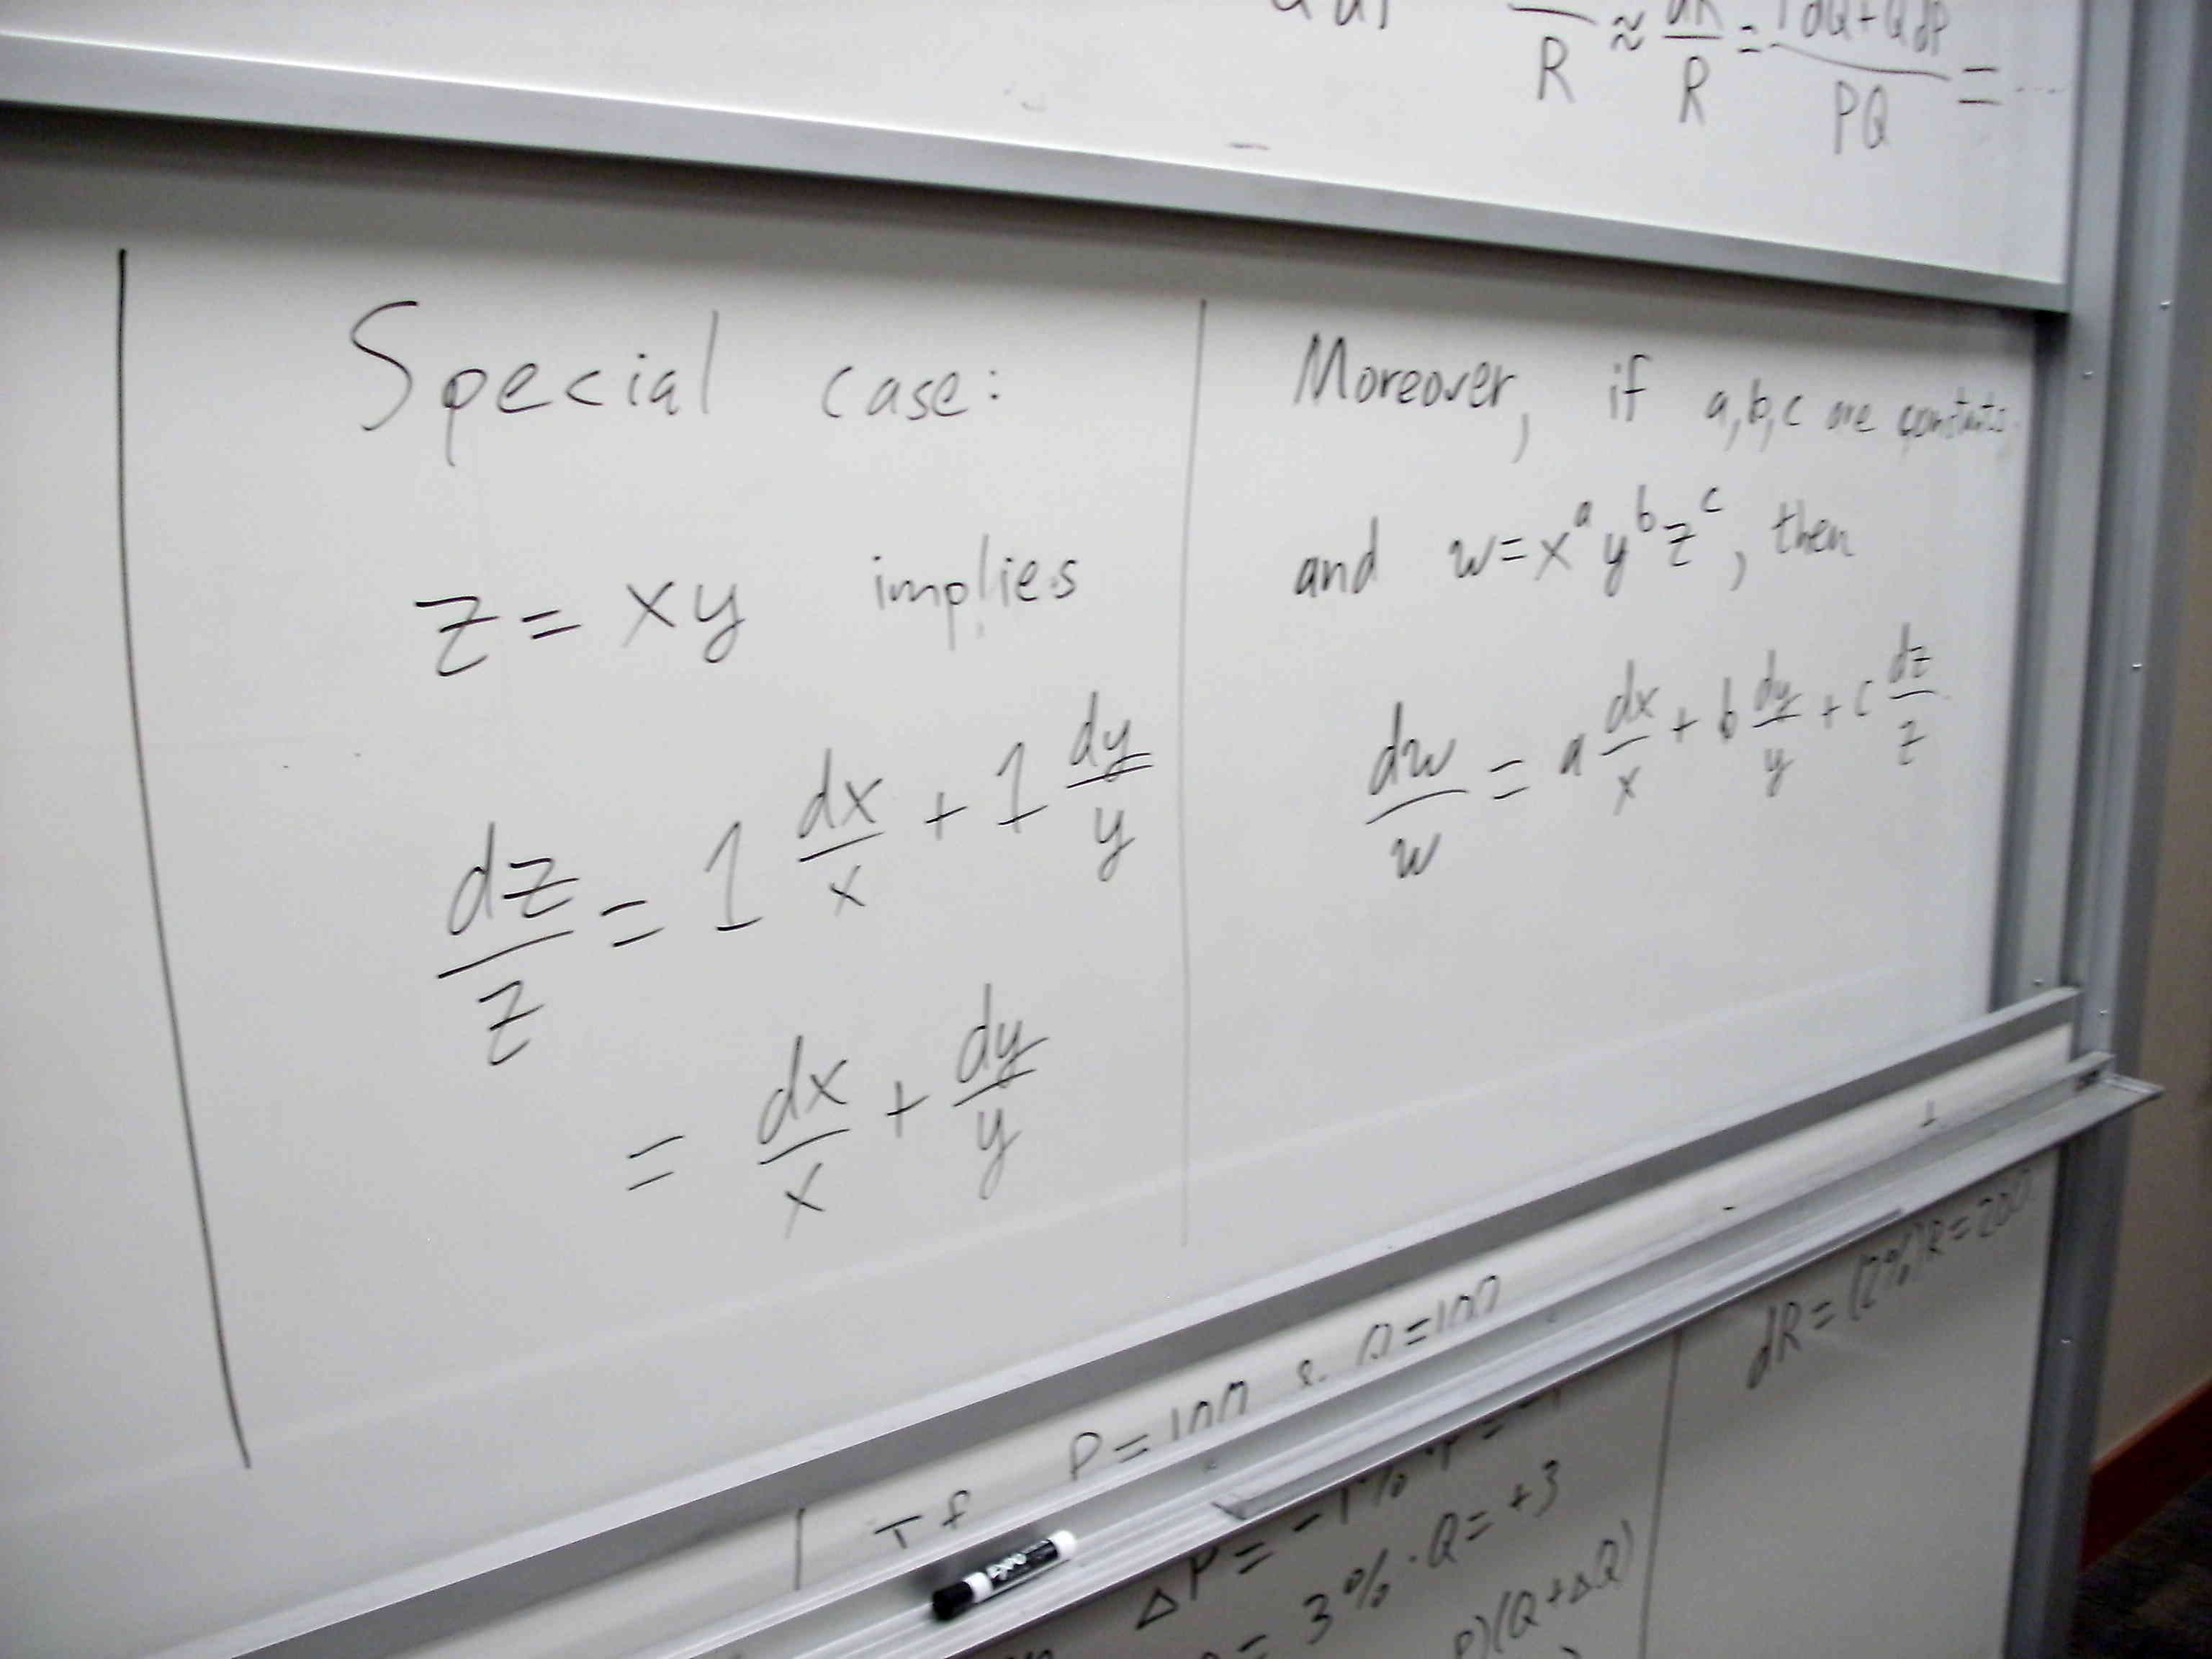 R ≈ dR/R = PdQ+QdP/PQ = ...
Special case:
z = xy implies
dz/z = 1 dx/x + 1 dy/y
= dx/x + dy/y
Moreover, if a,b,c are constants,
and w=x^a y^b z^c, then
dw/w = a dx/x + b dy/y + c dz/z
If P=100 & Q=100
ΔP = -1%
= 3% · Q = +3
)(Q+ΔQ)
dR = (2%)R = 200
EXPO